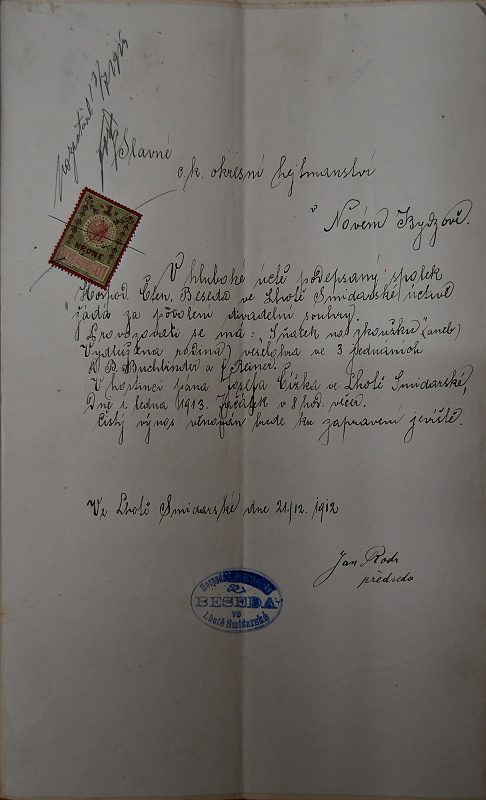 Slavné
c. k. okresní hejtmanství
v Novém Bydžově.
V hluboké úctě podepsaný spolek
Hospod. Čten. Beseda ve Lhotě Smidarské uctivě
žádá za povolení divadelní souhry.
Provozovati se má: "Sňatek na zkoušku" (aneb)
Vydlužená rodina) veselohra ve 3 jednáních
B. Buchbinder a F. Reiner.
V hostinci pana Josefa Čížka ve Lhotě Smidarské,
Dne 1 ledna 1913. Začátek v 8 hod. večer.
Čistý výnos věnován bude ku zapravení jeviště.
Ve Lhotě Smidarské dne 21/12. 1912
Jan Rodr
předseda
1
KRONE
BESEDA
ve
Lhotě Smidarské